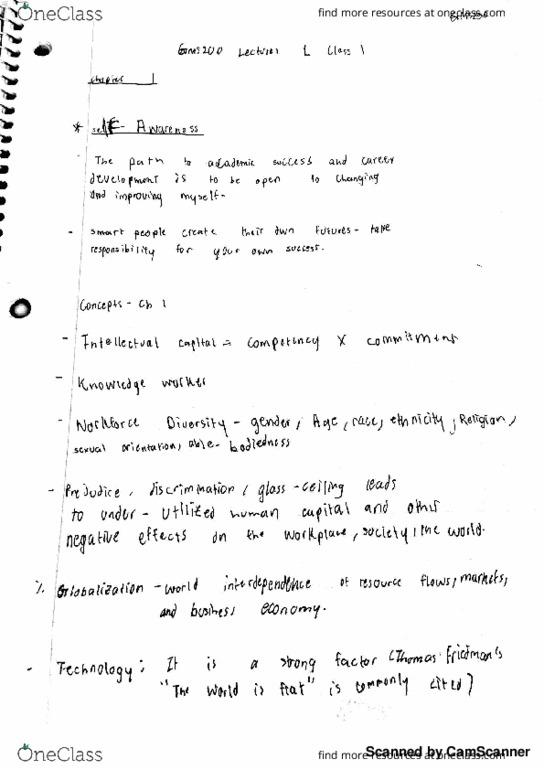 OneClass
find more resources at oneclass.com
GMS200 Lecture 1 Class 1
Chapter 1
* self- Awareness
- The path to academic success and career
development is to be open to changing
and improving myself-
- smart people create their own futures - take
responsibility for your own success.
Concepts - Ch 1
- Intellectual capital = competency X commitment
- Knowledge worker
- Workforce Diversity - gender, Age, race, ethnicity, Religion,
sexual orientation, able-bodiedness
- Prejudice, discrimination, glass-ceiling leads
to under-utilized human capital and other
negative effects on the workplace, society, the world.
Globalization - world interdependence of resource flows, markets,
and business economy.
- Technology: It is a strong factor (Thomas Friedman's
"The world is flat" is commonly cited)
OneClass
find more resources at oneclass.com
Scanned by CamScanner